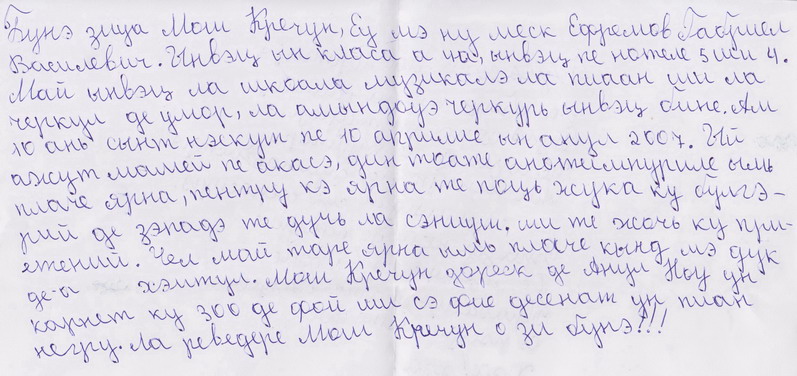 Бунэ зиуа Мош Кречун, Еу мэ ну меск Ефремов Габриел
Василевич. Ынвэц ын класа а на, ынвэц пе нотеле 5 ши 4.
Май ынвэц ла школа музикалэ ла пиаан ши ла
черкул де умор, ла амындоуэ черкурь ынвэц бине. Ам
10 ань сынт нэскут пе 10 априлие ын анул 2007. Ый
ажут мамей пе акасэ, дин тоате анотимпуриле ымь
плаче ярна, пентру кэ ярна те поць жука ку булгэ-
рий де зэпадэ те дучь ла сэниуш. ши те жочь ку при-
етений. Чел май таре ярна ымь плаче кынд мэ дук
де-а хэитул. Мош Кречун дореск де Анул Ноу ун
карнет ку 300 де фой ши сэ фие десенат ун пиан
негру. Ла реведере Мош Крёчун о зи бунэ!!!